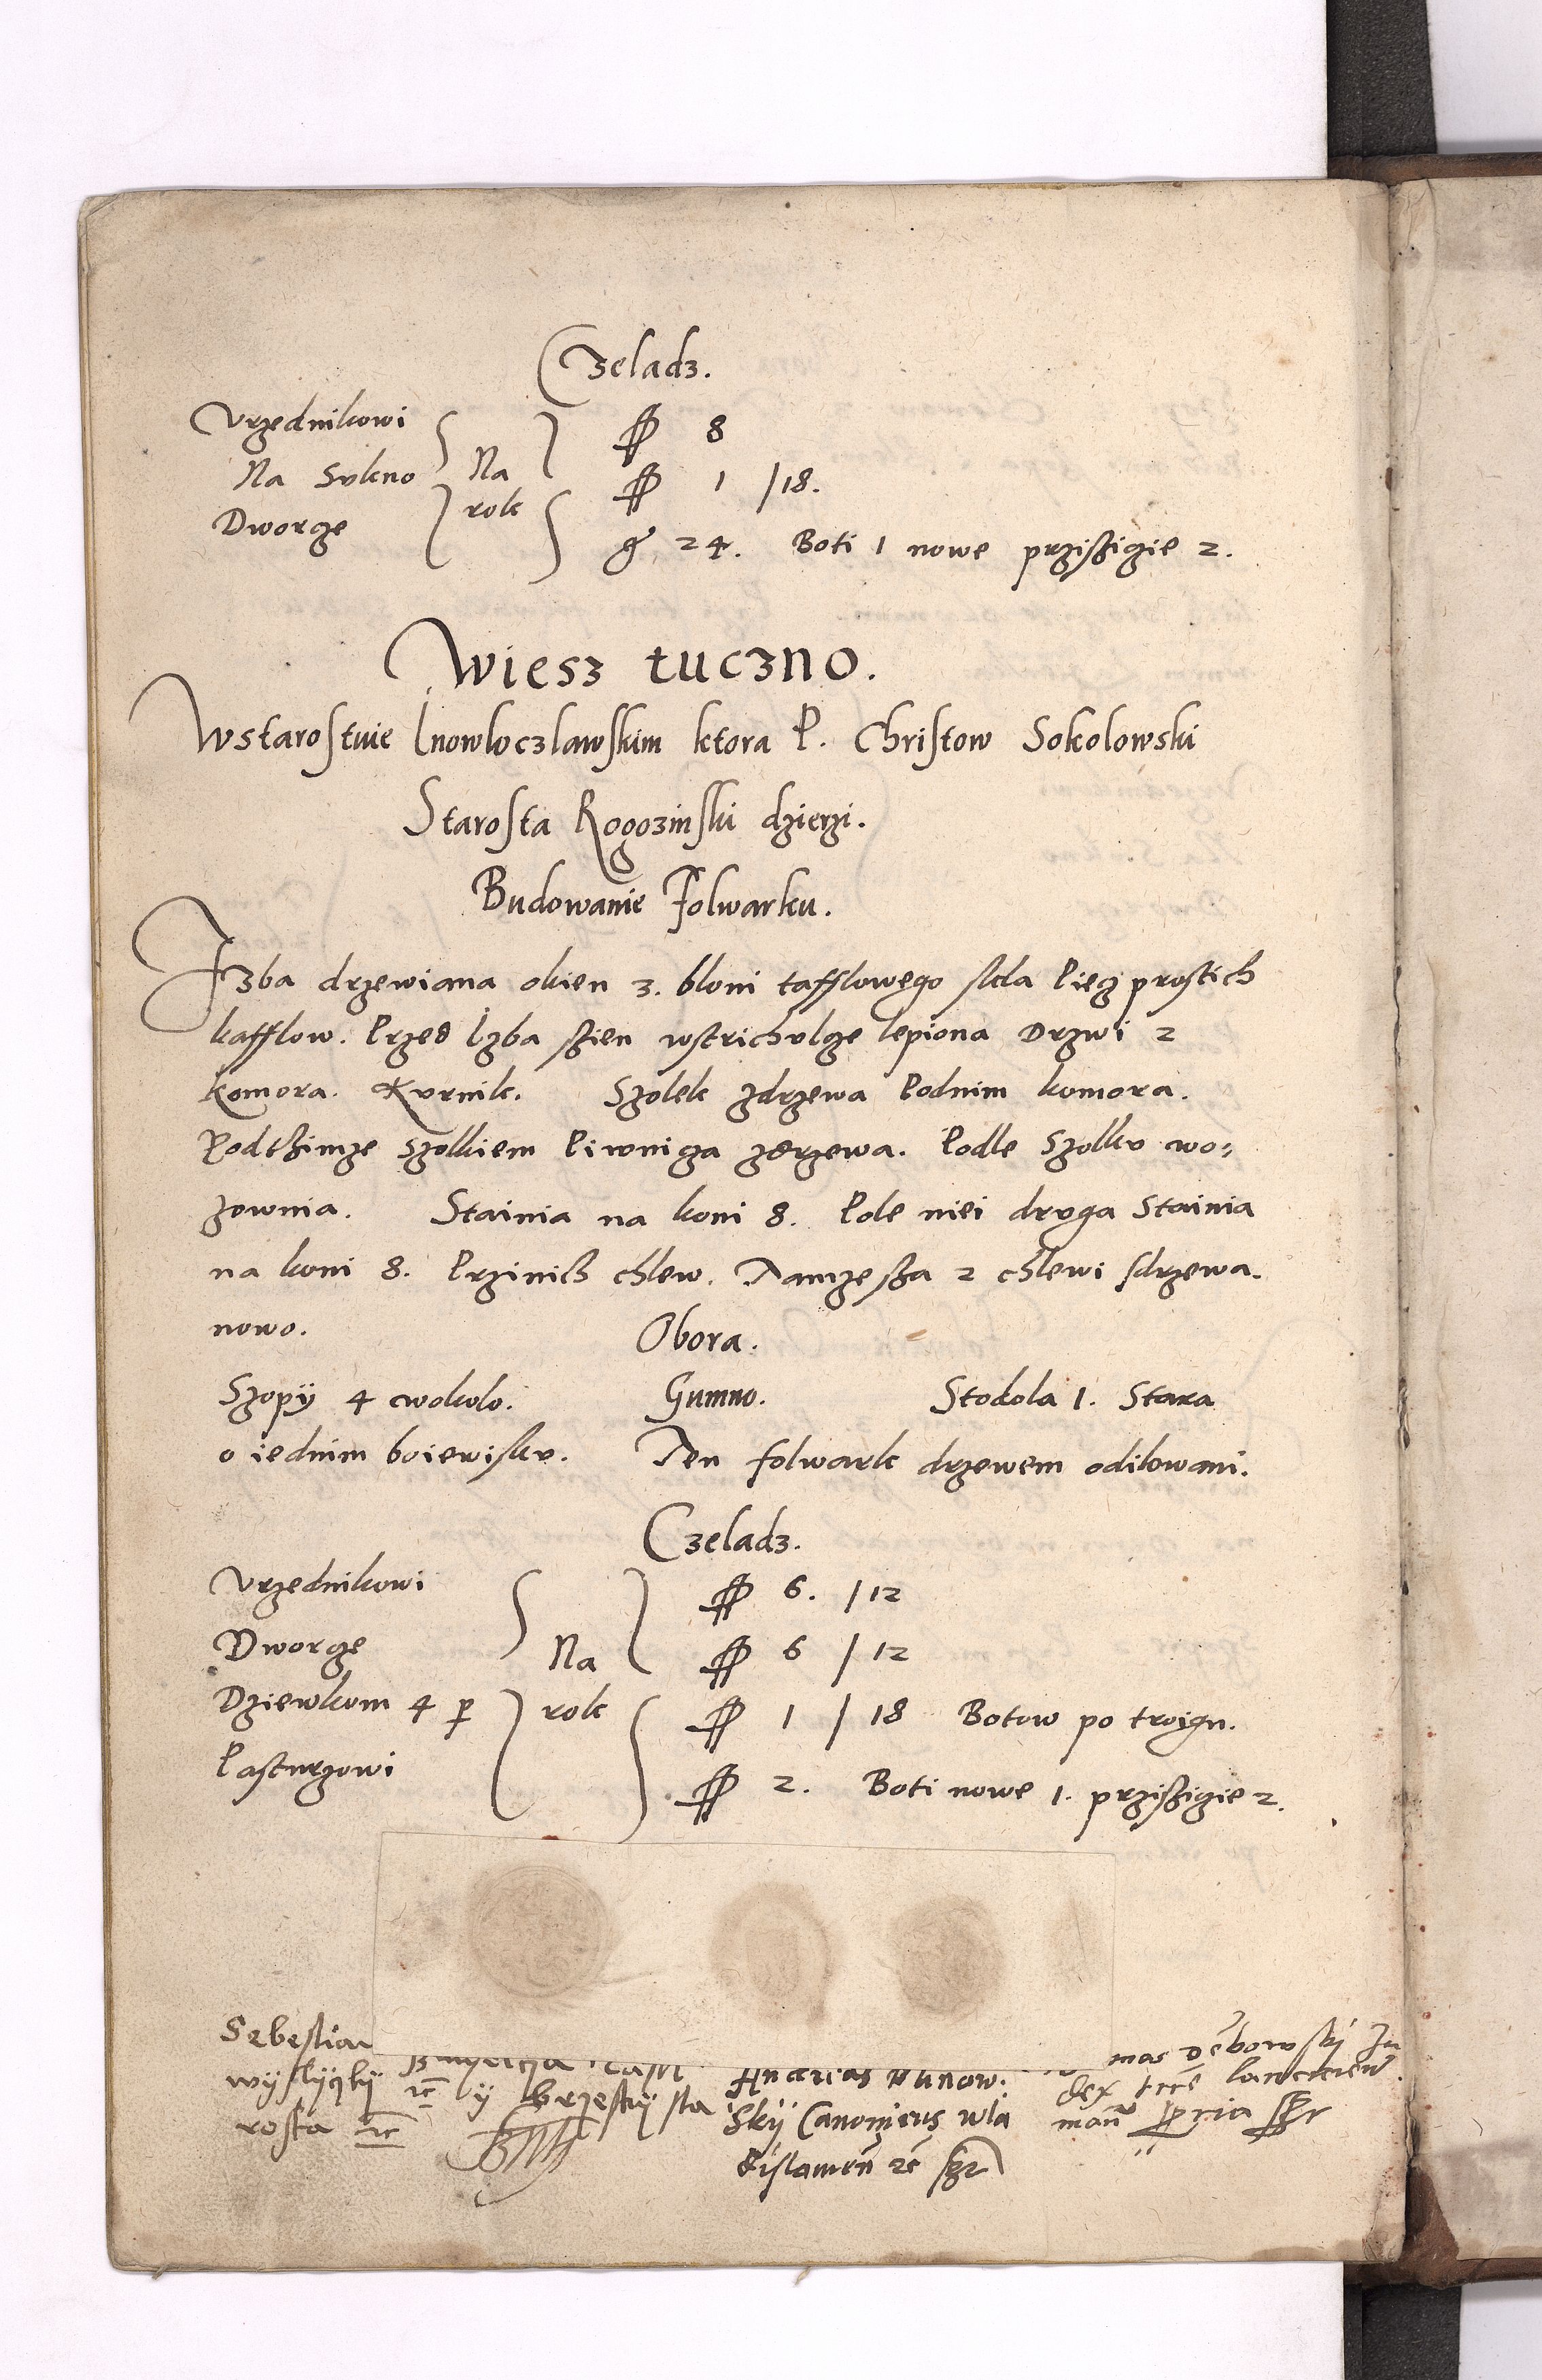 Czeladz.
Vrzednikowi
Na Svkno
Dworze
Na
rok
ff 8
ff 1 /18.
g 24. Boti 1 nowe prziszigie 2.
Wiesz tuczno.
Wstarostwie Inowloczlawskim ktora P. Christow Sokolowski
Starosta Rogozinski dzierzi.
Budowanie Folwarku.
Izba drzewiana okien 3. bloni tafflowego skla Piecz prostich
kafflow. Przed Izba szien wstrichvlcze lepiona Drzwi 2
komora. Kvrnik. Szolek zdrzewa Podnim komora.
Podthimze szolkiem Piwnicza zdrzewa. Podle Szolkv wo-
zownia. Stainia na koni 8. Pole niei drvga Stainia
na koni 8. Przinich chlew. Tamze sza 2 chlewi sdrzewa.
nowo.
Obora.
Szopÿ 4 wokolo. Gumno. Stodola 1. Stara
o iednim boiewiskv. Ten folwark drzewem odilowani.
Czeladz.
Vrzednikowi
Dworze
Dziewkom 4 p
Pasturzowi
Na
rok
ff 6. /12
ff 6 /12
ff 1 / 18 Botow po troign.
ff 2. Boti nowe 1. prziszigie 2.
Sebestian
wÿslÿczkÿ ÿ brzeskÿ sta
rosta
Andreas
Skÿ Canonicus wla
dislawien
mas Dębowski Ju
dex trre lanciciem
manu ppria